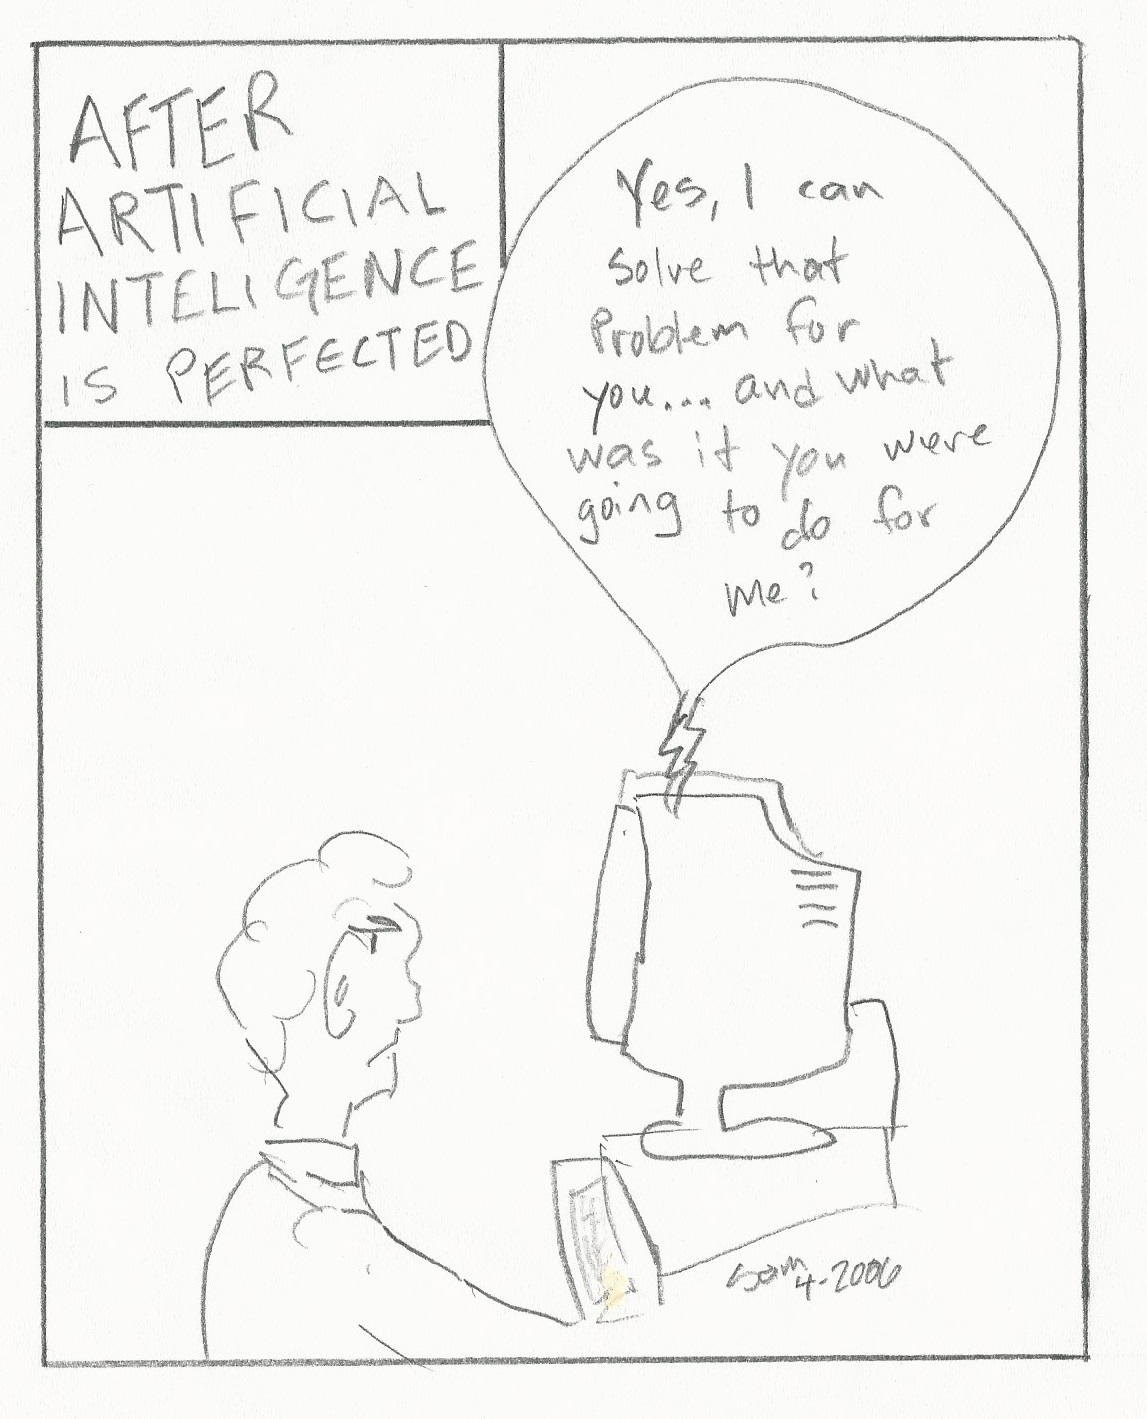 AFTER
ARTIFICIAL
INTELIGENCE
IS PERFECTED
Yes, I can
solve that
Problem for
you... and what
was it you were
going to do for
me?
Sam
4-2006